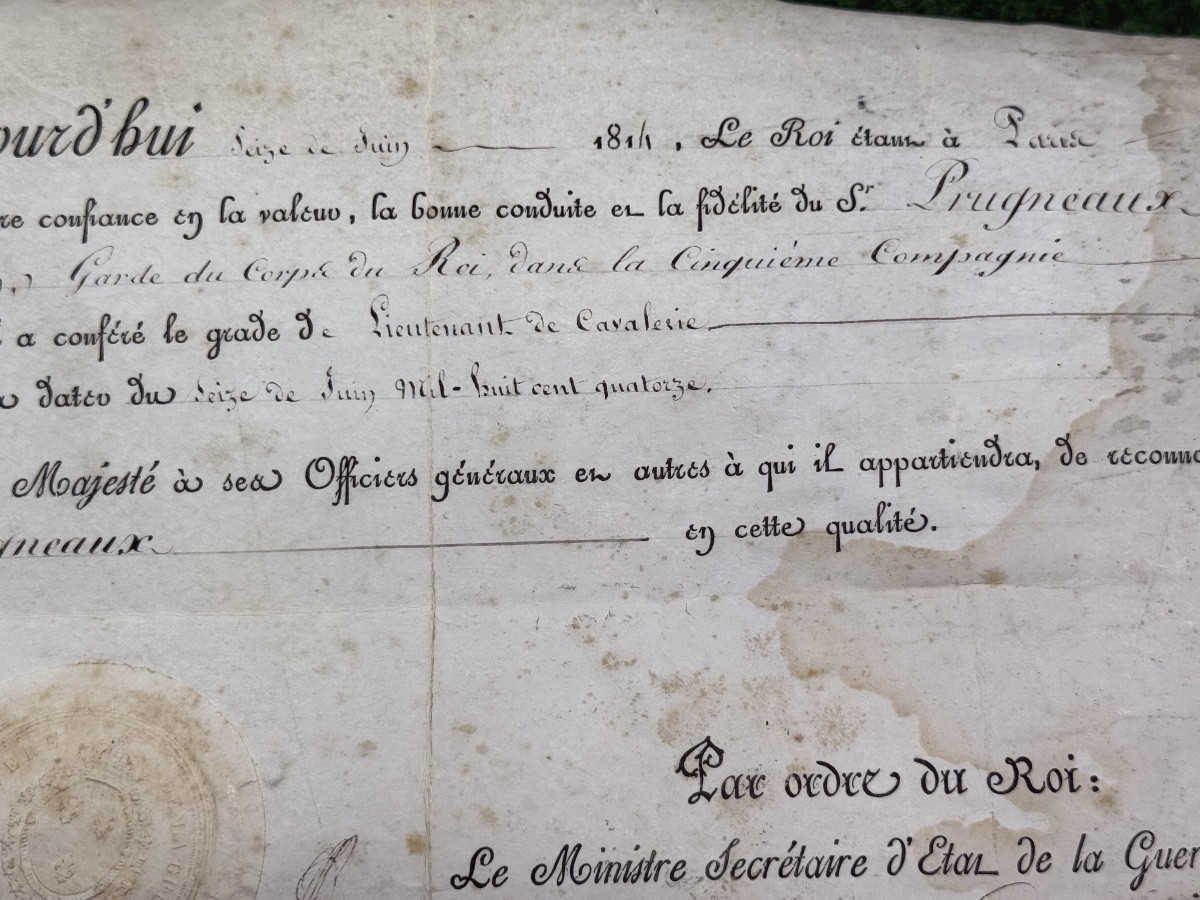 ourd'hui Seize de Juin 1814, Le Roi étant à Paris
re confiance en la valeur, la bonne conduite et la fidélité du S.r Prugneaux
Garde du Corps du Roi, dans la Cinquiéme Compagnie
a conféré le grade de Lieutenant de Cavalerie
dater du Seize de Juin Mil-huit cent quatorze.
Majesté à ses Officiers généraux et autres à qui il appartiendra, de reconno
gneaux en cette qualité.
Par ordre du Roi:
Le Ministre Secrétaire d'Etat de la Guer